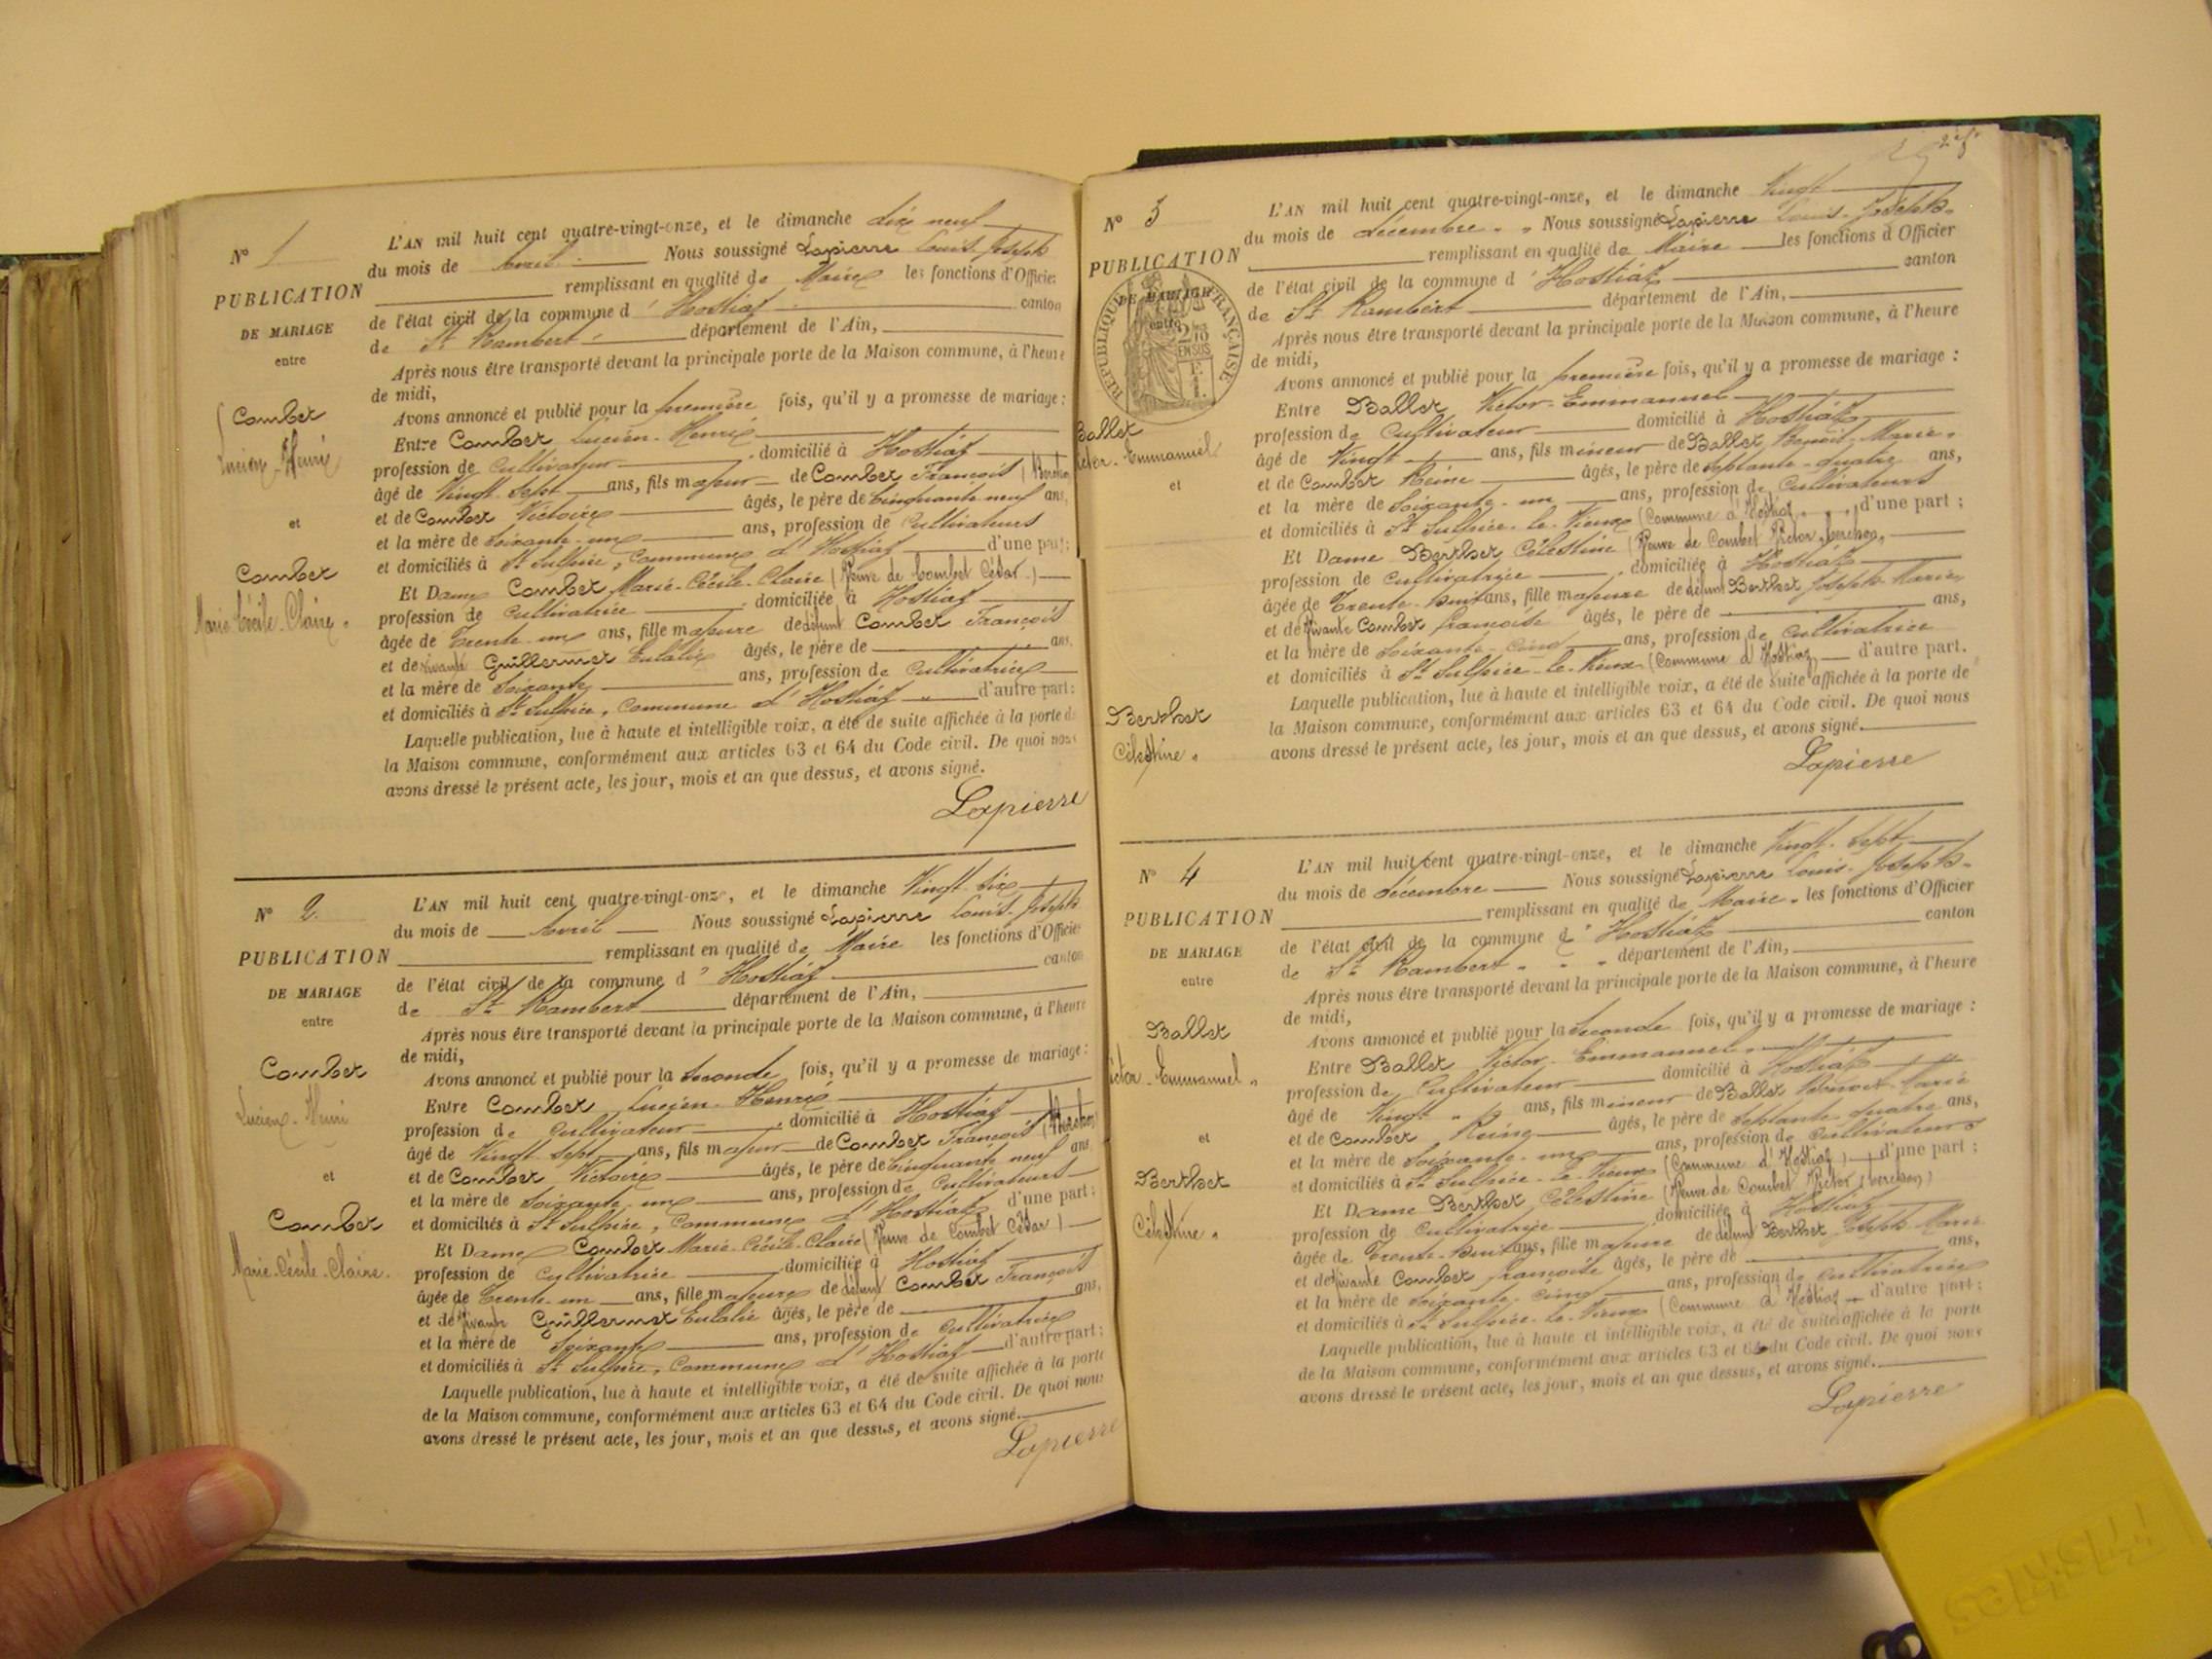 N° 1
PUBLICATION
DE MARIAGE
entre
Combet
Lucien-Henri
et
Combet
Marie-Cécile-Claire.
L'AN mil huit cent quatre-vingt-onze, et le dimanche dix neuf
du mois de Avril Nous soussigné Lapierre Louis Joseph
remplissant en qualité de Maire les fonctions d'Officier
de l'état civil de la commune d'Hostiaz canton
de St Rambert département de l'Ain,
Après nous être transporté devant la principale porte de la Maison commune, à l'heure
de midi,
Avons annoncé et publié pour la première fois, qu'il y a promesse de mariage :
Entre Combet Lucien-Henri
profession de Cultivateur domicilié à Hostiaz
âgé de Vingt-sept ans, fils majeur de Combet François
et de Combet Victoire âgés, le père de Cinquante neuf ans,
et la mère de soixante-un ans, profession de Cultivateurs
et domiciliés à St Sulpice, Commune d'Hostiaz d'une part;
Et Dame Combet Marie-Cécile-Claire (Veuve de Combet César)
profession de Cultivatrice domiciliée à Hostiaz
âgée de Trente-un ans, fille majeure de défunt Combet François
et de vivante Guillermet Eulalie âgés, le père de ans,
et la mère de soixante ans, profession de Cultivatrice
et domiciliés à St Sulpice, Commune d'Hostiaz d'autre part:
Laquelle publication, lue à haute et intelligible voix, a été de suite affichée à la porte de
la Maison commune, conformément aux articles 63 et 64 du Code civil. De quoi nous
avons dressé le présent acte, les jour, mois et an que dessus, et avons signé.
Lapierre
N° 2.
PUBLICATION
DE MARIAGE
entre
Combet
Lucien-Henri
et
Combet
Marie-Cécile-Claire.
L'AN mil huit cent quatre-vingt-onze, et le dimanche Vingt-six
du mois de Avril Nous soussigné Lapierre Louis-Joseph
remplissant en qualité de Maire les fonctions d'Officier
de l'état civil de la commune d'Hostiaz canton
de St Rambert département de l'Ain,
Après nous être transporté devant la principale porte de la Maison commune, à l'heure
de midi,
Avons annoncé et publié pour la seconde fois, qu'il y a promesse de mariage :
Entre Combet Lucien-Henri
profession de Cultivateur domicilié à Hostiaz
âgé de Vingt-sept ans, fils majeur de Combet François
et de Combet Victoire âgés, le père de Cinquante neuf ans
et la mère de soixante-un ans, profession de Cultivateurs
et domiciliés à St Sulpice, Commune d'Hostiaz d'une part:
Et Dame Combet Marie-Cécile-Claire (Veuve de Combet César)
profession de Cultivatrice domiciliée à Hostiaz
âgée de Trente-un ans, fille majeure de défunt Combet François
et de vivante Guillermet Eulalie âgés, le père de ans,
et la mère de soixante ans, profession de Cultivatrice
et domiciliés à St Sulpice, Commune d'Hostiaz d'autre part:
Laquelle publication, lue à haute et intelligible voix, a été de suite affichée à la porte
de la Maison commune, conformément aux articles 63 et 64 du Code civil. De quoi nous
avons dressé le présent acte, les jour, mois et an que dessus, et avons signé.
Lapierre
N° 3
PUBLICATION
DE MARIAGE
entre
RÉPUBLIQUE FRANÇAISE
EN SUS
Ballet
Victor-Emmanuel
et
Berthet
Célestine.
L'AN mil huit cent quatre-vingt-onze, et le dimanche Vingt
du mois de décembre Nous soussigné Lapierre Louis-Joseph
remplissant en qualité de Maire les fonctions d'Officier
de l'état civil de la commune d'Hostiaz canton
de St Rambert département de l'Ain,
Après nous être transporté devant la principale porte de la Maison commune, à l'heure
de midi,
Avons annoncé et publié pour la première fois, qu'il y a promesse de mariage :
Entre Ballet Victor-Emmanuel
profession de Cultivateur domicilié à Hostiaz
âgé de Vingt ans, fils mineur de Ballet Benoit-Marie,
et de Combet Reine âgés, le père de septante-quatre ans,
et la mère de soixante-un ans, profession de Cultivateurs
et domiciliés à St Sulpice-le-Vieux (Commune d'Hostiaz d'une part ;
Et Dame Berthet Célestine (Veuve de Combet Victor
profession de Cultivatrice domiciliée à Hostiaz
âgée de Trente-huit ans, fille majeure de défunt Berthet Joseph-Marie,
et de vivante Combet Françoise âgés, le père de ans,
et la mère de soixante-cinq ans, profession de Cultivatrice
et domiciliés à St Sulpice-le-Vieux (Commune d'Hostiaz d'autre part.
Laquelle publication, lue à haute et intelligible voix, a été de suite affichée à la porte de
la Maison commune, conformément aux articles 63 et 64 du Code civil. De quoi nous
avons dressé le présent acte, les jour, mois et an que dessus, et avons signé.
Lapierre
N° 4
PUBLICATION
DE MARIAGE
entre
Ballet
Victor-Emmanuel
et
Berthet
Célestine.
L'AN mil huit cent quatre-vingt-onze, et le dimanche Vingt-sept
du mois de décembre Nous soussigné Lapierre Louis-Joseph
remplissant en qualité de Maire les fonctions d'Officier
de l'état civil de la commune d'Hostiaz canton
de St Rambert département de l'Ain,
Après nous être transporté devant la principale porte de la Maison commune, à l'heure
de midi,
Avons annoncé et publié pour la seconde fois, qu'il y a promesse de mariage :
Entre Ballet Victor-Emmanuel
profession de Cultivateur domicilié à Hostiaz
âgé de Vingt ans, fils mineur de Ballet Benoit-Marie
et de Combet Reine âgés, le père de septante-quatre ans,
et la mère de soixante-un ans, profession de Cultivateurs
et domiciliés à St Sulpice-le-Vieux (Commune d'Hostiaz) d'une part ;
Et Dame Berthet Célestine (Veuve de Combet Victor
profession de Cultivatrice domiciliée à Hostiaz
âgée de Trente-huit ans, fille majeure de défunt Berthet Joseph-Marie
et de vivante Combet Françoise âgés, le père de ans,
et la mère de soixante-cinq ans, profession de Cultivatrice
et domiciliés à St Sulpice-le-Vieux (Commune d'Hostiaz d'autre part;
Laquelle publication, lue à haute et intelligible voix, a été de suite affichée à la porte
de la Maison commune, conformément aux articles 63 et 64 du Code civil. De quoi nous
avons dressé le présent acte, les jour, mois et an que dessus, et avons signé.
Lapierre
Friskies